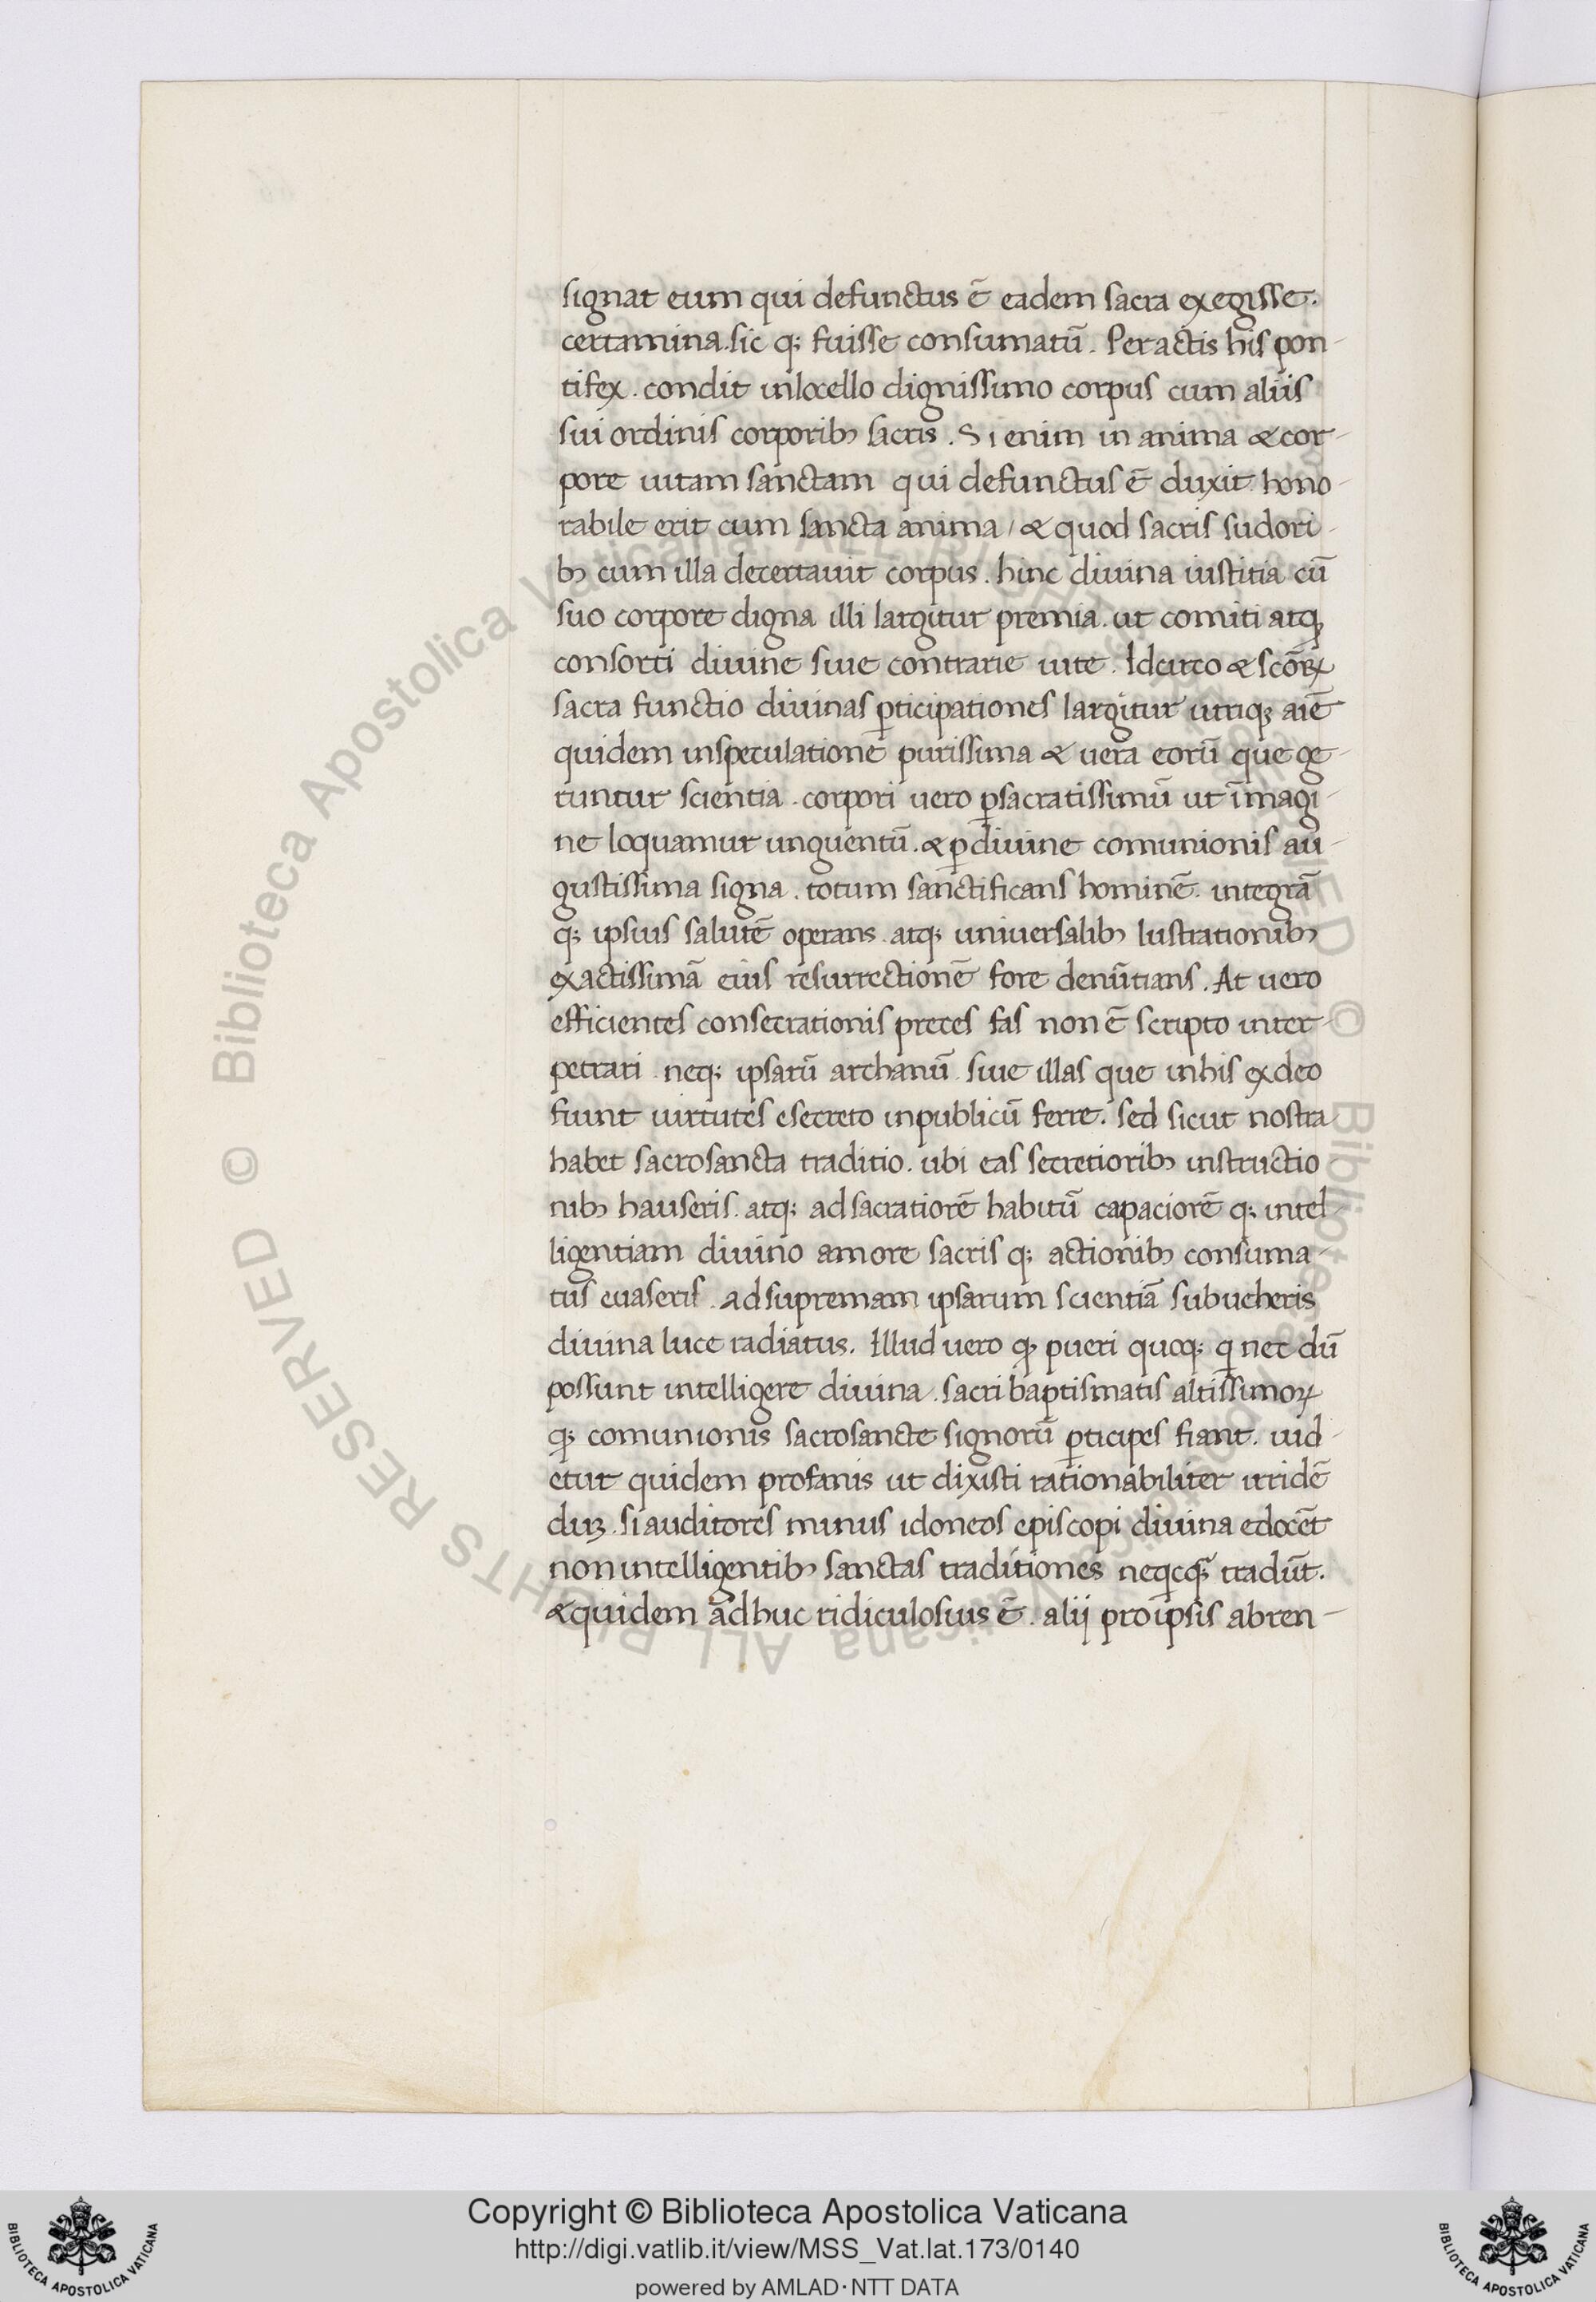 signat eum qui defunctus ē eadem sacra exegisse.
certamina. sic q; fuisse consumatū. Peractis his pon-
tifex. condit inlocello dignissimo corpus cum aliis
sui ordinis corporibꝫ sacris. Si enim in anima & cor-
pore uitam sanctam qui defunctus ē duxit. hono-
rabile erit cum sancta anima / & quod sacris sudori-
bꝫ cum illa decertauit corpus. hinc diuina iustitia cū
suo corpore digna illi largitur premia. ut comiti atq;
consorti diuine siue contrarie uite. Idcirco & scōꝝ
sacra functio diuinas ꝑticipationes largitur utriq; aīe
quidem inspeculatione purissima & uera eorū que ge-
runtur scientia. corpori uero ꝑsacratissimū ut īmagi-
ne loquamur unguentū. & ꝑdiuine comunionis au-
gustissima signa. totum sanctificans hominē. integrā
q; ipsius salutē operans. atq; uniuersalibꝫ lustrationibꝫ
exactissimā eius resurrectionē fore denūtians. At uero
efficientes consecrationis preces fas non ē scripto inter-
petrari. neq; ipsarū archanū. siue illas que inhis exdeo
fiunt uirtutes esecreto inpublicū ferre. sed sicut nostra
habet sacrosancta traditio. ubi eas secretioribꝫ instructio
nibꝫ hauseris. atq; adsacratiorē habitū capaciorē q; intel-
ligentiam diuino amore sacris q; actionibꝫ consuma-
tus euaseris. Adsupremam ipsarum scientiā subueheris
diuina luce radiatus. Illud uero ꝙ pueri quoq; q̄ nec dū
possunt intelligere diuina. sacri baptismatis altissimoꝝ
q; comunionis sacrosancte signorū ꝑticipes fiant. uid-
etur quidem profanis ut dixisti rationabiliter irridē
duꝫ. si auditores minus idoneos episcopi diuina edocēt
non intelligentibꝫ sanctas traditiones neqcq̄ tradūt.
& quidem adhuc ridiculosius ē. alij proipsis abren-
Copyright © Biblioteca Apostolica Vaticana
http://digi.vatlib.it/view/MSS_Vat.lat.173/0140
powered by AMLAD·NTT DATA
BIBLIOTECA APOSTOLICA VATICANA
BIBLIOTECA APOSTOLICA VATICANA
© Biblioteca Apostolica Vaticana ALL RIGHTS RESERVED © Biblioteca Apostolica Vaticana ALL RIGHTS RESERVED